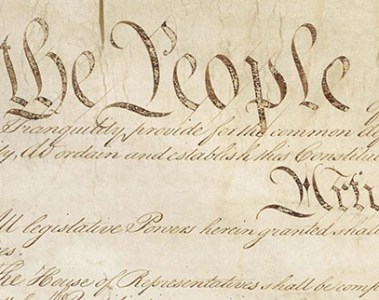 the People
Tranquility, provide for the common de
ty, do ordain and establish this Constitu
Arti
All legislative Powers herein granted shall
es.
The House of Representatives shall be comp